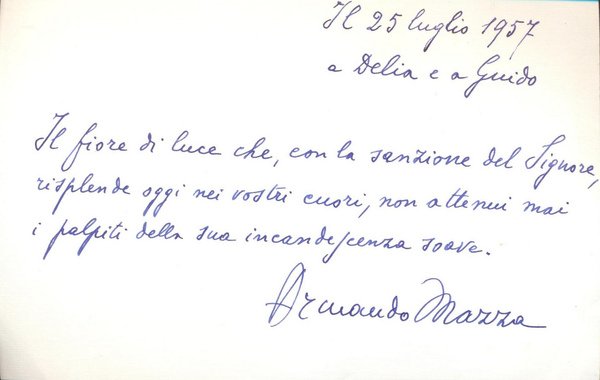 Il 25 luglio 1957
a Delia e a Guido
Il fiore di luce che, con la sanzione del Signore,
risplende oggi nei vostri cuori, non attenui mai
i palpiti della sua incandescenza soave.
Armando Mazza